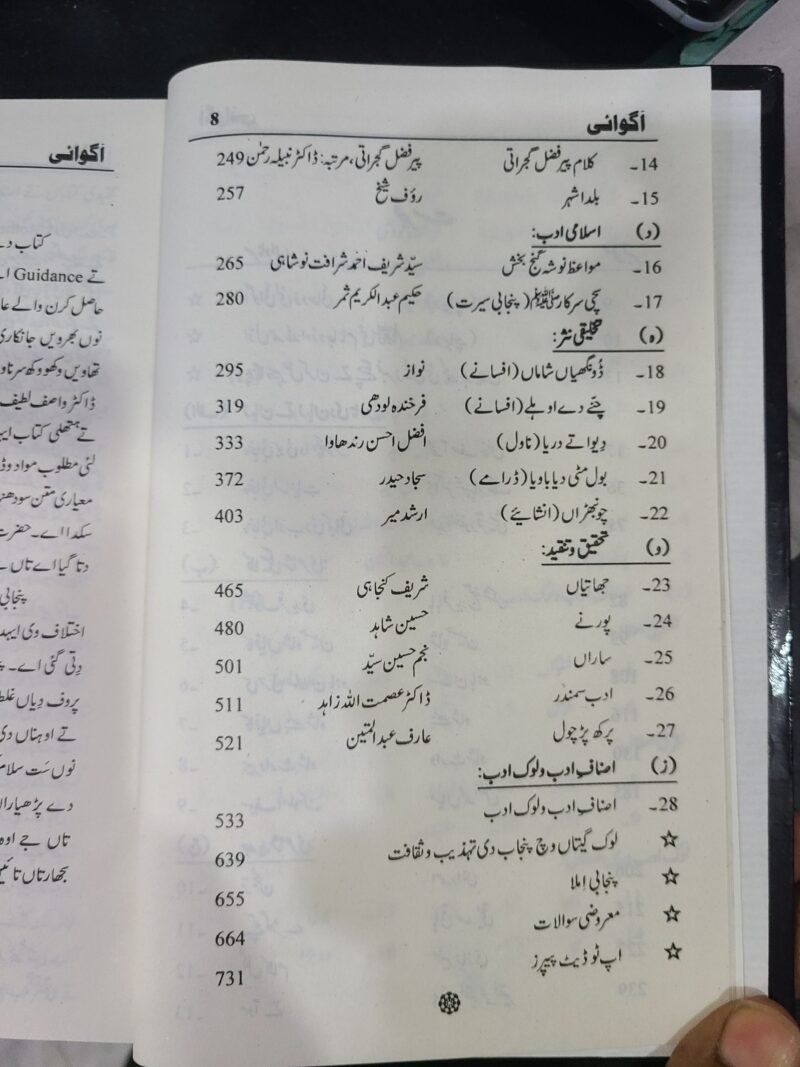 اَگوائی 8
14۔ کلام پیر فضل گجراتی پیر فضل گجراتی، مرتبہ: ڈاکٹر نبیلہ رحمٰن 249
15۔ بلدا شہر رؤف شیخ 257
(د) اسلامی ادب:
16۔ مواعظ نوشہ گنج بخش سیّد شریف احمد شرافت نوشاہی 265
17۔ سچی سرکار ﷺ (پنجابی سیرت) حکیم عبدالکریم ثمر 280
(ہ) تخلیقی نثر:
18۔ ڈُونگھیاں شاماں (افسانے) نواز 295
19۔ چنّے دے اوہلے (افسانے) فرخندہ لودھی 319
20۔ دِیوا تے دریا (ناول) افضل احسن رندھاوا 333
21۔ بول مٹی دیا باویا (ڈرامے) سجاد حیدر 372
22۔ چونبھڑاں (انشائیے) ارشد میر 403
(و) تحقیق و تنقید:
23۔ جھاتیاں شریف کنجاہی 465
24۔ پورنے حسین شاہد 480
25۔ ساراں نجم حسین سیّد 501
26۔ ادب سمندر ڈاکٹر عصمت اللہ زاہد 511
27۔ پرکھ پڑچول عارف عبدالمتین 521
(ز) اصنافِ ادب و لوک ادب:
28۔ اصنافِ ادب و لوک ادب 533
☆ لوک گیتاں وچ پنجاب دی تہذیب و ثقافت 639
☆ پنجابی اِملا 655
☆ معروضی سوالات 664
☆ اپ ٹو ڈیٹ پیپرز 731
اَگوائی
کتاب دے
تے Guidance
حاصل کرن والے
نوں بھرویں جانکاری
تھاویں وکھو وکھ
ڈاکٹر واصف لطیف
تے ہتھلی کتاب
لئی مطلوب مواد
معیاری متن
سکدا اے۔ حضرت
دتا گیا اے تاں
پنجابی
اختلاف وی ایہد
دِتی گئی اے۔
پروف دِیاں
تے اوہناں دی
نوں ست سلام
دے پڑھیاراں
تاں جے اوہ
بجھارتاں تائیں